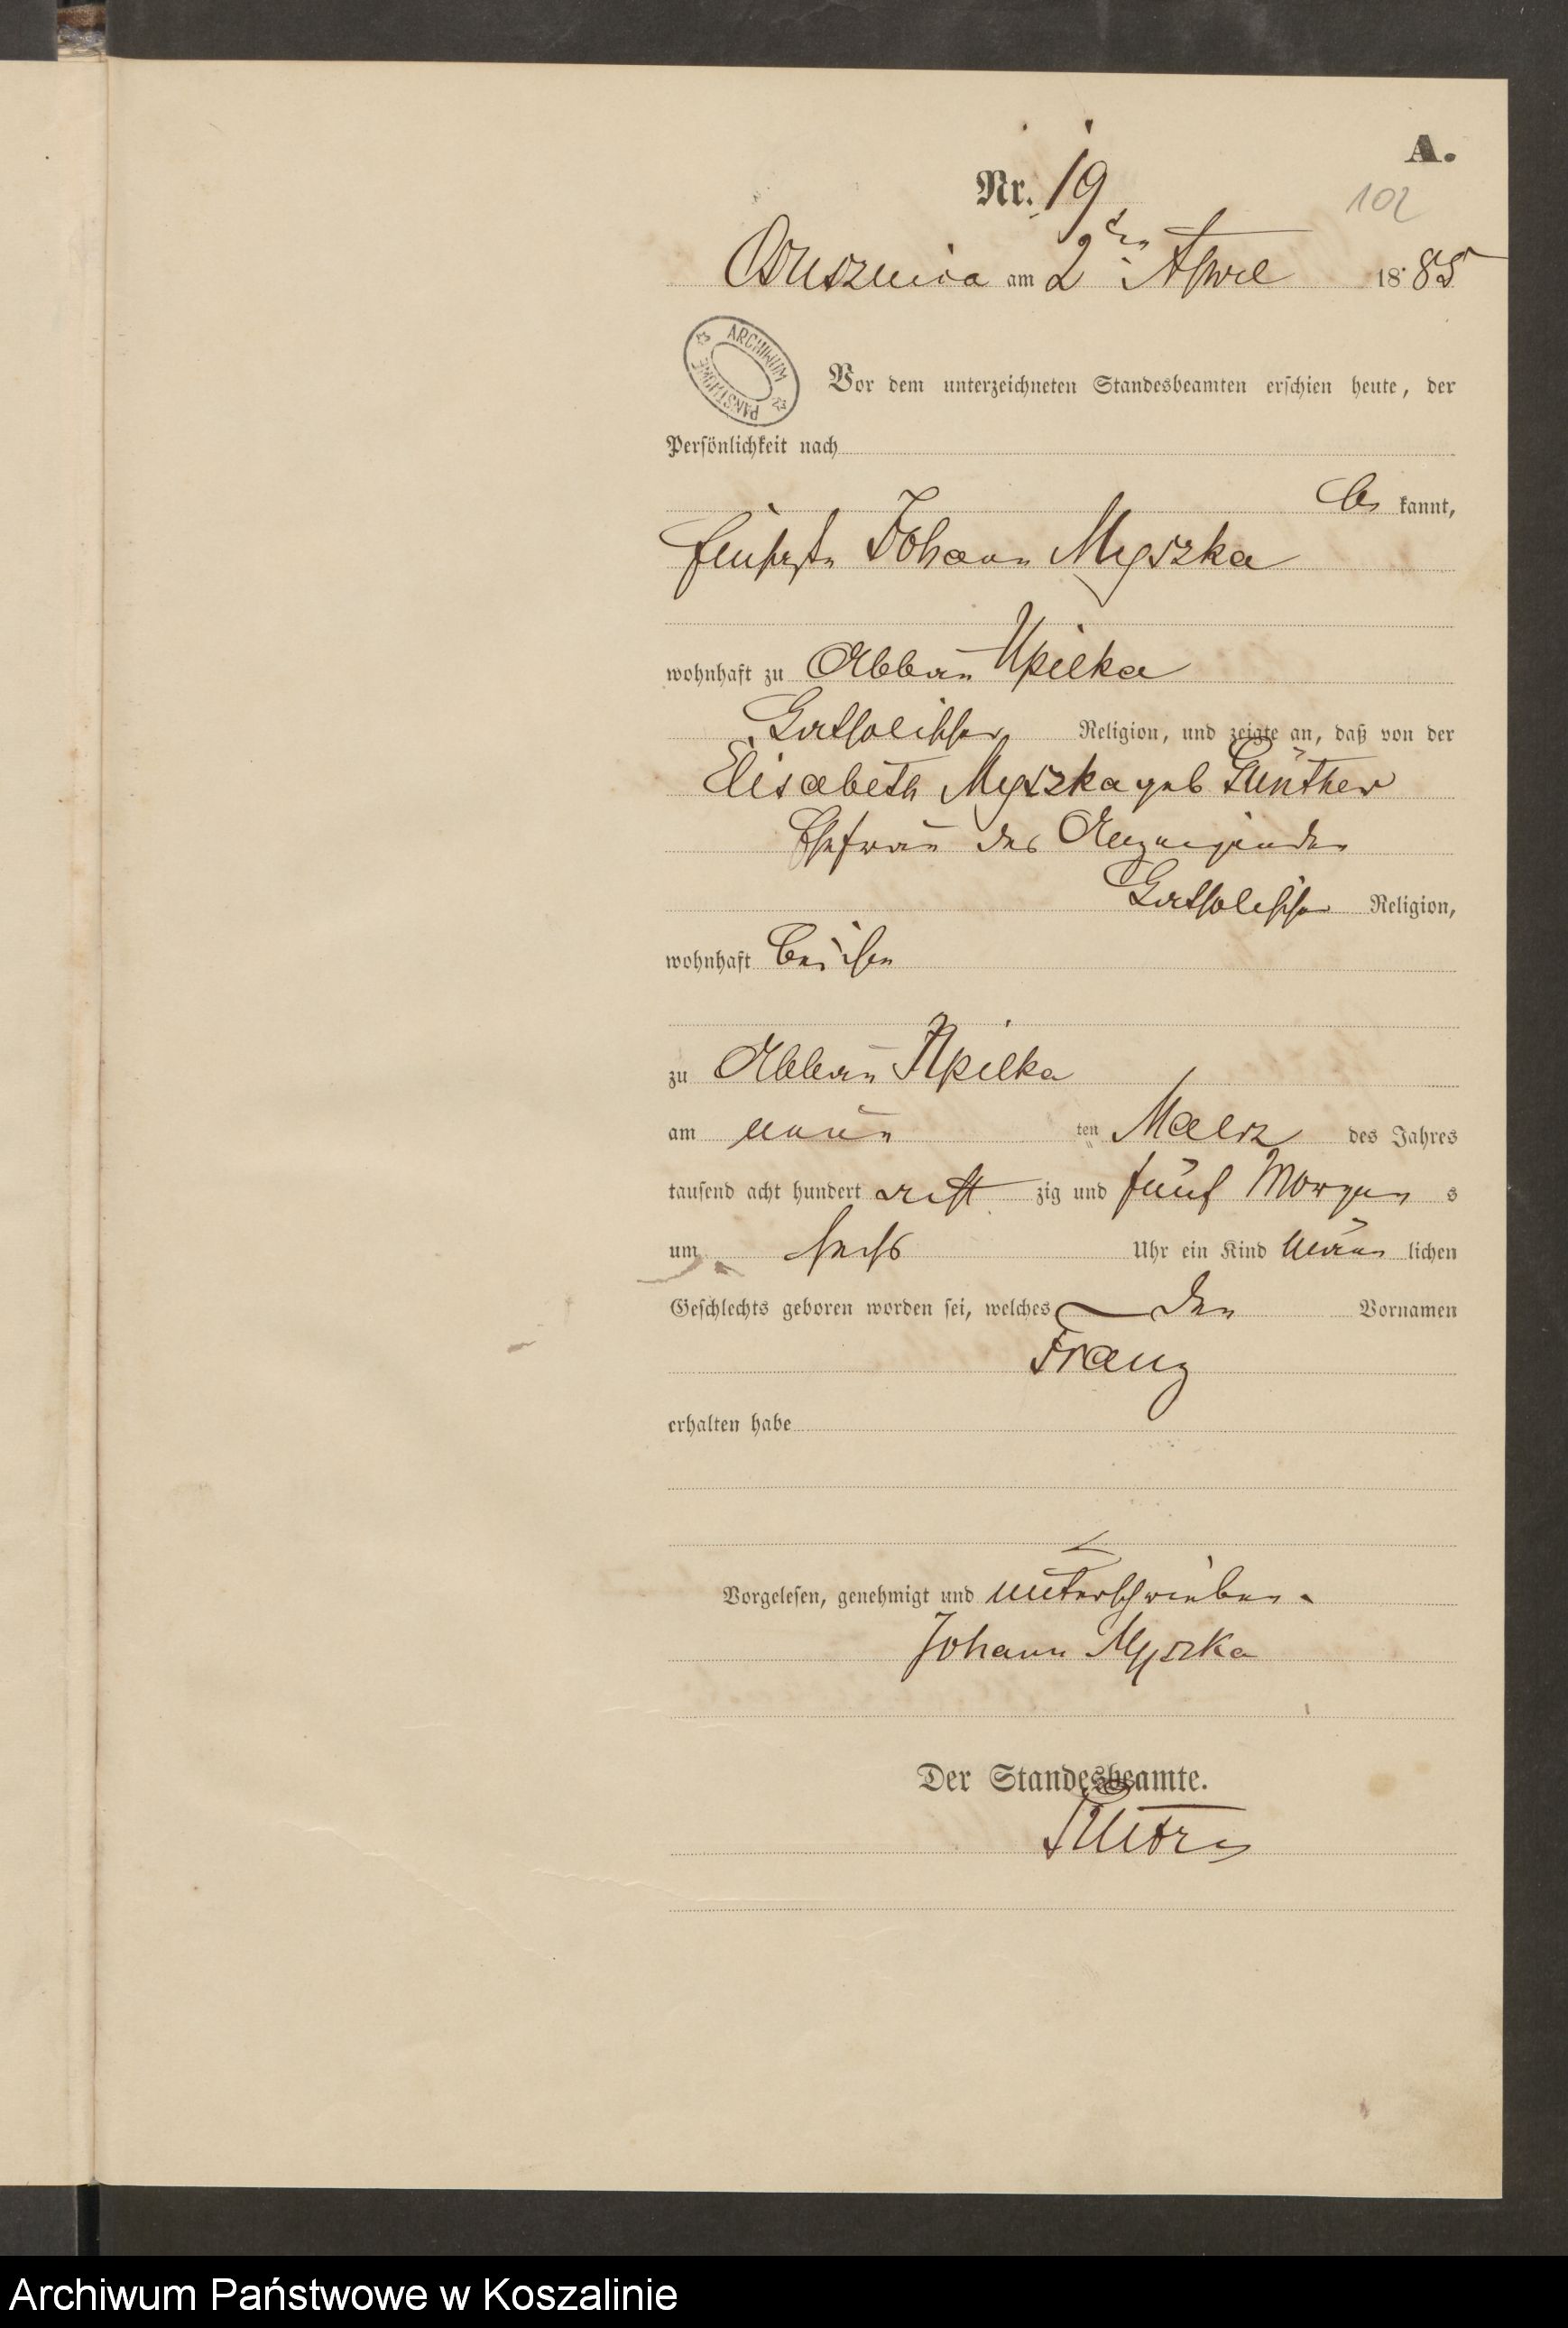 A.
Nr. 19
102
Ossusznica am 2ten April 1885
ARCHIWUM PAŃSTWOWE
Vor dem unterzeichneten Standesbeamten erschien heute, der
Persönlichkeit nach
be kannt,
Johann Myszka
wohnhaft zu Abbau Upilka
katholischer Religion, und zeigte an, daß von der
Elisabeth Myszka geb Günther
Ehefrau des Anzeigenden
katholischer Religion,
wohnhaft bei ihm
zu Abbau Upilka
am neun ten März des Jahres
tausend acht hundert acht zig und fünf Morgen s
um sechs Uhr ein Kind männ lichen
Geschlechts geboren worden sei, welches den Vornamen
Franz
erhalten habe
Vorgelesen, genehmigt und unterschrieben.
Johann Myszka
Der Standesbeamte.
Archiwum Państwowe w Koszalinie